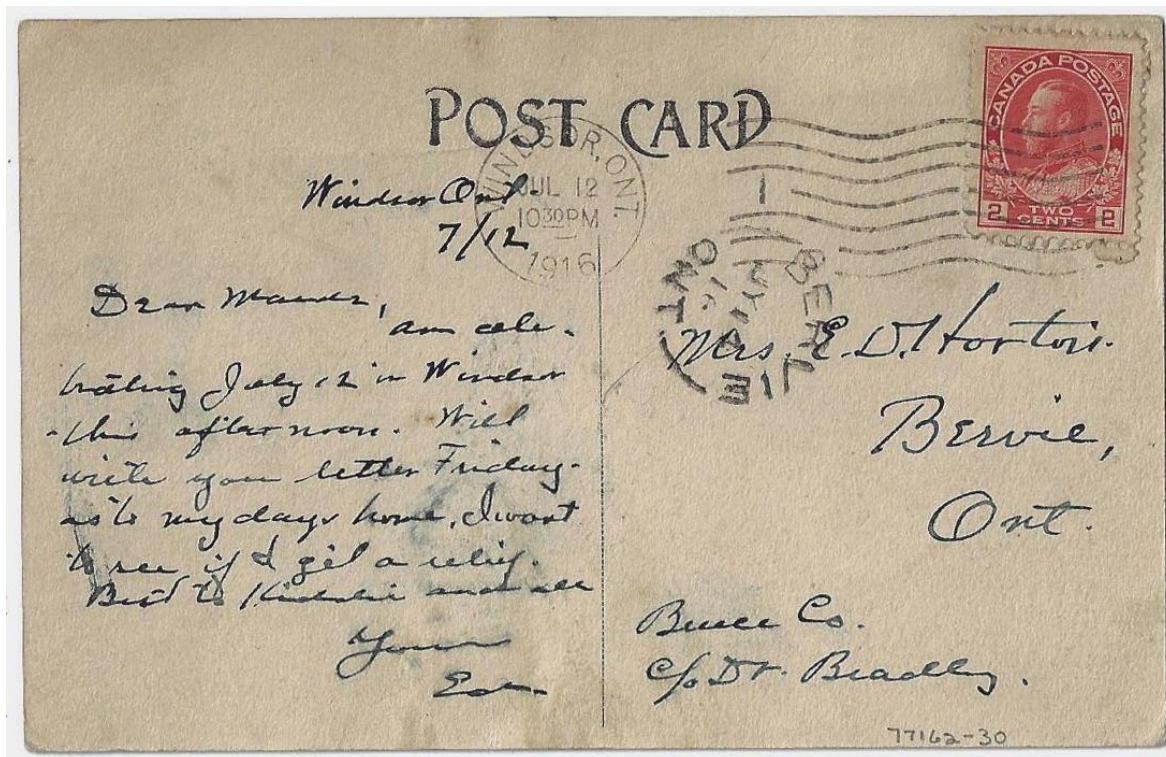 POST CARD
WINDSOR, ONT.
JUL 12
10 30 PM
1916
CANADA POSTAGE
2 TWO CENTS 2
BERVIE
ONT
Windsor Ont-
7/12
Dear
am cele-
brating July 12 in Windsor
this afternoon. Will
write you letter Friday-
as to my days home, I want
to see if I get a relief.
Best to Kiddie and all
Yours
Ed-
Mrs. E. D. Horton.
Bervie,
Ont.
Bruce Co.
c/o Dr. Bradley.
77162-30